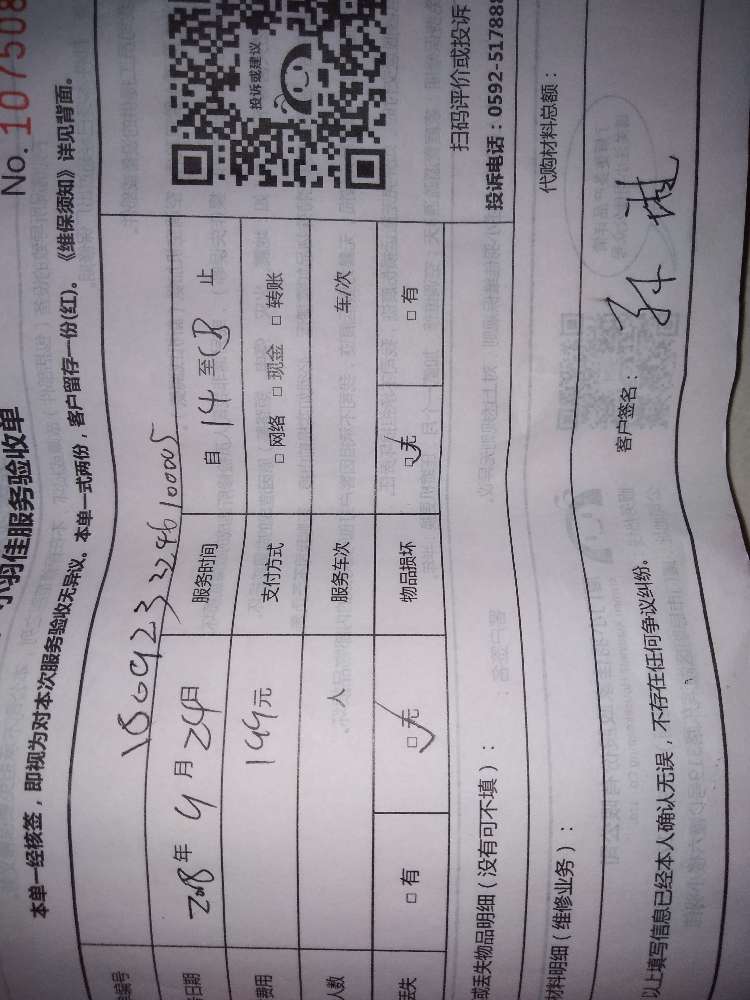 No.107508
羽佳服务验收单
本单一经核签，即视为对本次服务验收无异议。本单一式两份，客户留存一份(红)。《维保须知》详见背面。
编号 180923329610005
日期 2018年9月24日 服务时间 自14至18止
费用 199元 支付方式 □网络 □现金 □转账
人数 人 服务车次 车/次
丢失 □有 □无 物品损坏 □无 □有
投诉或建议
扫码评价或投诉
投诉电话：0592-517888
或丢失物品明细（没有可不填）：
材料明细（维修业务）：
代购材料总额：
以上填写信息已经本人确认无误，不存在任何争议纠纷。
客户签名：